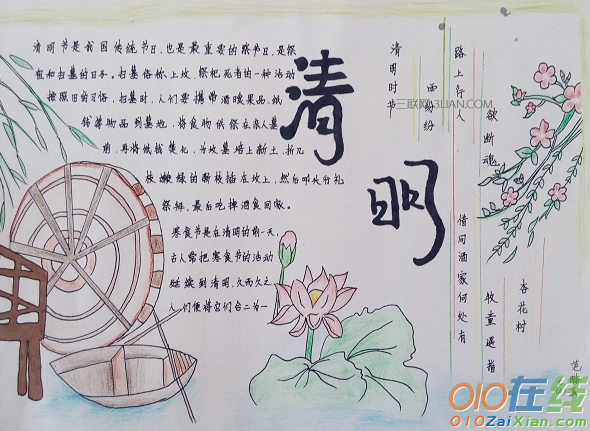 清明节是我国传统节日,也是最重要的祭节日,是祭
祖和扫墓的日子。扫墓俗称上坟,祭祀死者的一种活动
按照旧的习俗,扫墓时,人们要携带酒食果品、纸
钱等物品到墓地,将食物供祭在亲人墓
前,再将纸钱焚化,为坟墓培上新土,折几
枝嫩绿的新枝插在坟上,然后叩头行礼
祭拜,最后吃掉酒食回家。
寒食节是在清明的前一天,
古人常把寒食节的活动
延续到清明,久而久之
人们便将它们合二为一
清明
清明时节
雨纷纷
路上行人
欲断魂
借问酒家何处有
牧童遥指
杏花村
三联网 3LIAN.COM
010在线
010ZaiXian.com